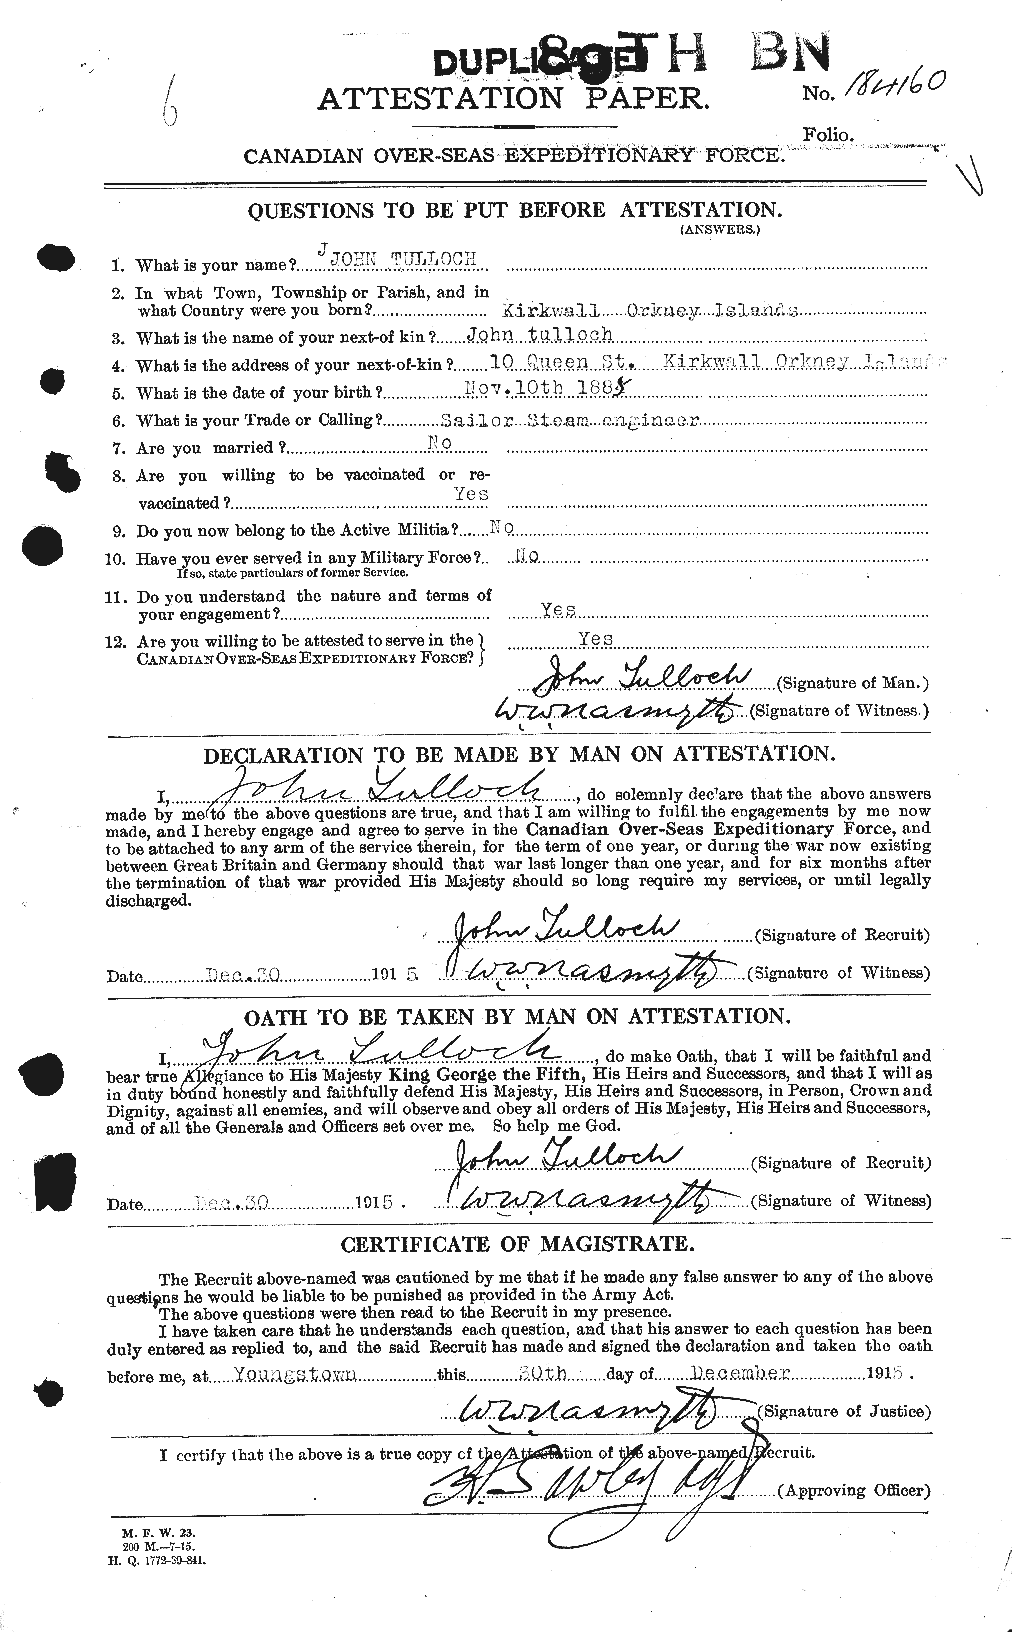 DUPLICATE 89TH BN
6
ATTESTATION PAPER.
No. 184160
Folio.
CANADIAN OVER-SEAS EXPEDITIONARY FORCE.
QUESTIONS TO BE PUT BEFORE ATTESTATION.
(ANSWERS.)
1. What is your name? J JOHN TULLOCH
2. In what Town, Township or Parish, and in
what Country were you born? Kirkwall Orkney Islands
3. What is the name of your next-of kin? John tulloch
4. What is the address of your next-of-kin? 10 Queen St. Kirkwall Orkney Islands
5. What is the date of your birth? Nov.10th 188
6. What is your Trade or Calling? Sailor Steam engineer
7. Are you married? No
8. Are you willing to be vaccinated or re-
vaccinated? Yes
9. Do you now belong to the Active Militia? No
10. Have you ever served in any Military Force? No
If so, state particulars of former Service.
11. Do you understand the nature and terms of
your engagement? Yes
12. Are you willing to be attested to serve in the
CANADIAN OVER-SEAS EXPEDITIONARY FORCE? } Yes
John Tulloch (Signature of Man.)
W W Nasmyth (Signature of Witness.)
DECLARATION TO BE MADE BY MAN ON ATTESTATION.
I, John Tulloch, do solemnly declare that the above answers
made by me to the above questions are true, and that I am willing to fulfil the engagements by me now
made, and I hereby engage and agree to serve in the Canadian Over-Seas Expeditionary Force, and
to be attached to any arm of the service therein, for the term of one year, or during the war now existing
between Great Britain and Germany should that war last longer than one year, and for six months after
the termination of that war provided His Majesty should so long require my services, or until legally
discharged.
John Tulloch (Signature of Recruit)
Date Dec.30 1915 W W Nasmyth (Signature of Witness)
OATH TO BE TAKEN BY MAN ON ATTESTATION.
I, John Tulloch, do make Oath, that I will be faithful and
bear true Allegiance to His Majesty King George the Fifth, His Heirs and Successors, and that I will as
in duty bound honestly and faithfully defend His Majesty, His Heirs and Successors, in Person, Crown and
Dignity, against all enemies, and will observe and obey all orders of His Majesty, His Heirs and Successors,
and of all the Generals and Officers set over me. So help me God.
John Tulloch (Signature of Recruit)
Date Dec.30 1915. W W Nasmyth (Signature of Witness)
CERTIFICATE OF MAGISTRATE.
The Recruit above-named was cautioned by me that if he made any false answer to any of the above
questions he would be liable to be punished as provided in the Army Act.
The above questions were then read to the Recruit in my presence.
I have taken care that he understands each question, and that his answer to each question has been
duly entered as replied to, and the said Recruit has made and signed the declaration and taken the oath
before me, at Youngstown this 30th day of December 1915.
W W Nasmyth (Signature of Justice)
I certify that the above is a true copy of the Attestation of the above-named Recruit.
(Approving Officer)
M. F. W. 23.
200 M.—7-15.
H. Q. 1772-39-841.